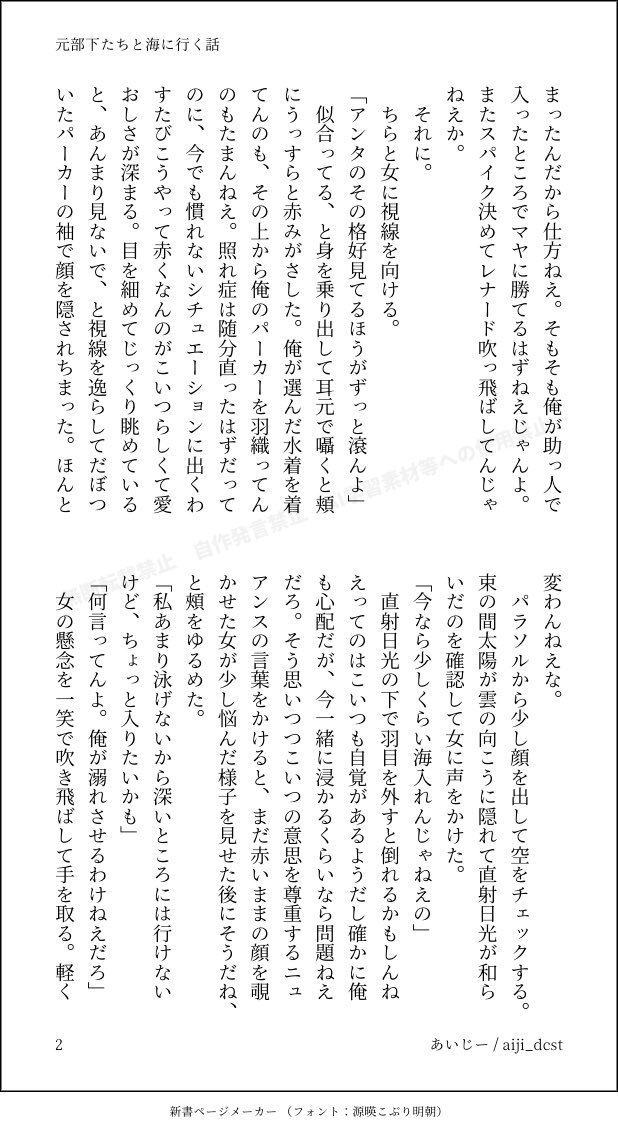 元部下たちと海に行く話
まったんだから仕方ねえ。そもそも俺が助っ人で
入ったところでマヤに勝てるはずねえじゃんよ。
またスパイク決めてレナード吹っ飛ばしてんじゃ
ねえか。
それに。
ちらと女に視線を向ける。
「アンタのその格好見てるほうがずっと滾んよ」
似合ってる、と身を乗り出して耳元で囁くと頬
にうっすらと赤みがさした。俺が選んだ水着を着
てんのも、その上から俺のパーカーを羽織ってん
のもたまんねえ。照れ症は随分直ったはずだって
のに、今でも慣れないシチュエーションに出くわ
すたびこうやって赤くなんのがこいつらしくて愛
おしさが深まる。目を細めてじっくり眺めている
と、あんまり見ないで、と視線を逸らしてだぼつ
いたパーカーの袖で顔を隠されちまった。ほんと
変わんねえな。
パラソルから少し顔を出して空をチェックする。
束の間太陽が雲の向こうに隠れて直射日光が和ら
いだのを確認して女に声をかけた。
「今なら少しくらい海入れんじゃねえの」
直射日光の下で羽目を外すと倒れるかもしんね
えってのはこいつも自覚があるようだし確かに俺
も心配だが、今一緒に浸かるくらいなら問題ねえ
だろ。そう思いつつこいつの意思を尊重するニュ
アンスの言葉をかけると、まだ赤いままの顔を覗
かせた女が少し悩んだ様子を見せた後にそうだね、
と頬をゆるめた。
「私あまり泳げないから深いところには行けない
けど、ちょっと入りたいかも」
「何言ってんよ。俺が溺れさせるわけねえだろ」
女の懸念を一笑で吹き飛ばして手を取る。軽く
2
あいじー / aiji_dcst
新書ページメーカー（フォント：源暎こぶり明朝）